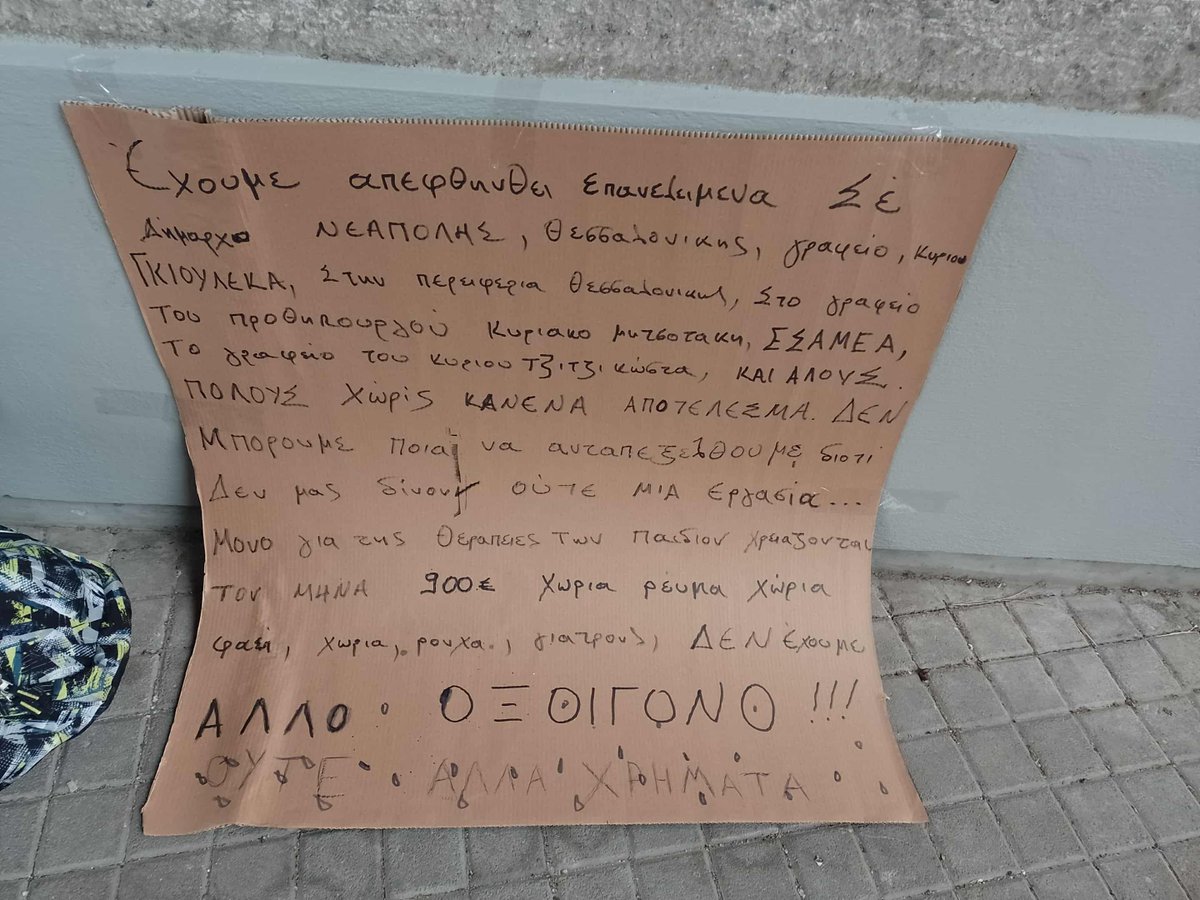 Έχουμε απεφθηνθει επανειλιμενα ΣΕ
Δημαρχο ΝΕΑΠΟΛΗΣ, Θεσσαλονικης, γραφειο, κυριου
ΓΚΙΟΥΛΕΚΑ, Στην περειφερια Θεσσαλονικης, Στο γραφειο
του προθηπουργού κυριακο μητσοτακη, ΕΣΑΜΕΑ,
Το γραφειο του κυριου Τζιτζι κώστα, ΚΑΙ ΑΛΟΥΣ.
ΠΟΛΟΥΣ χωρίς ΚΑΝΕΝΑ ΑΠΟΤΕΛΕΣΜΑ. ΔΕΝ
Μπορουμε ποια να ανταπεξελθουμε διοτι
Δεν μας δίνουν ούτε ΜΙΑ εργασία...
Μονο για της θεραπειες των παιδιον χρειαζονται
τον ΜΗΝΑ 900€ χωρια ρευμα χώρια
φαει, χωρια, ρουχα., γιατρους, ΔΕΝ έχουμε
ΑΛΛΟ ΟΞΘΙΓΟΝΟ!!!
ΟΥΤΕ ΑΛΛΑ ΧΡΗΜΑΤΑ